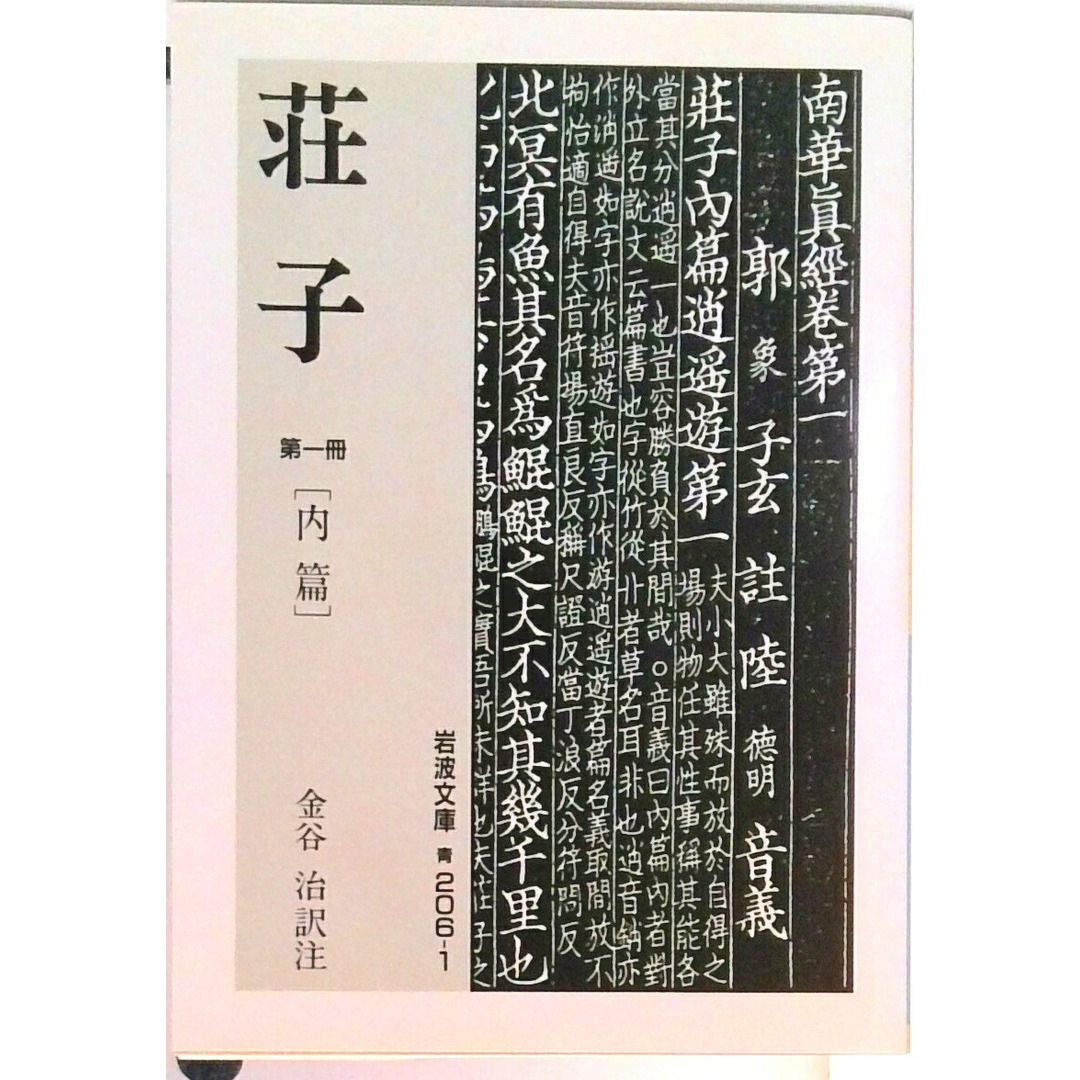 荘子
第一冊
［内篇］
金谷 治訳注
岩波文庫 青 206-1
南華眞經卷第一
郭象子玄註陸德明音義
莊子內篇逍遥遊第一
夫小大雖殊而放於自得之
場則物任其性事稱其能各
當其分逍遥一也豈容勝負於其間哉。音義曰內篇內者對
外立名說文云篇書也字從竹從卄者草名耳非也逍音銷亦
作消遥如字亦作揺遊如字亦作游逍遥遊者篇名義取間放不
拘怡適自得夫音符場直良反稱尺證反當丁浪反分符問反
北冥有魚其名爲鯤鯤之大不知其幾千里也